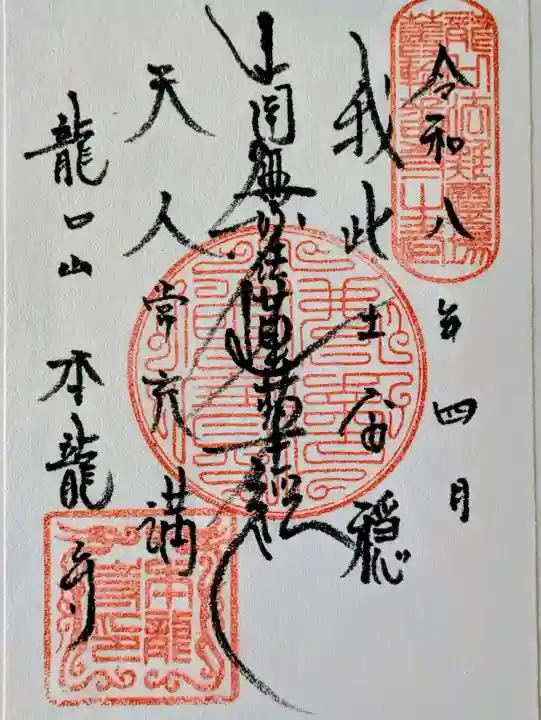 龍口法難靈場
令和八年四月
我此土安穏
南無妙法蓮華経
天人常充満
龍口山 本龍寺